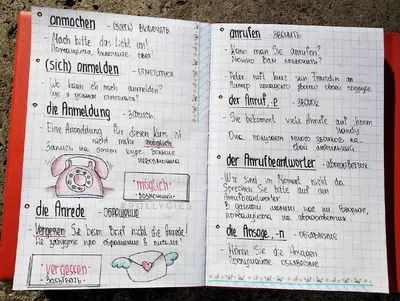 anmachen - (здесь) включать
- Mach bitte das Licht an!
Пожалуйста, включите свет
(sich) anmelden - отметиться
- Wo kann ich mich anmelden?
Где я должен отметиться?
die Anmeldung - запись
- Eine Anmeldung für diesen Kurs ist
nicht mehr möglich
Запись на этом курсе больше
невозможна
möglich
возможный
die Anrede - обращение
- Vergessen Sie beim Brief nicht die Anrede!
Не забудьте про обращение в письме!
vergessen
забывать
anrufen - звонить
- Kann man Sie anrufen?
Можно Вам позвонить?
- Peter ruft kurz sein Freundin an
Петер ненадолго звонит своей подруге
der Anruf, -e - звонок
- Sie bekommt viele Anrufe auf ihrem
Handy
Она получает много звонков на
свой мобильный
der Anrufbeantworter - автоответчик
- Wir sind im Moment nicht da.
Sprechen Sie bitte auf den
Anrufbeantworter
В данный момент нас нет
на автоответчик
die Ansage, -n - объявление
- Hören Sie die Ansagen
Прослушайте объявление